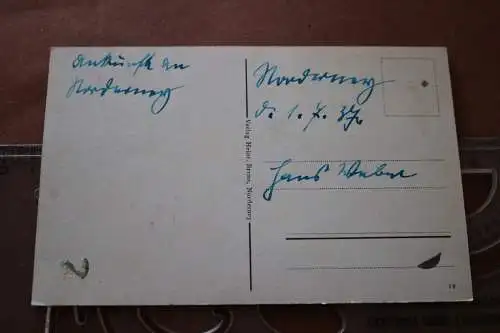 Ankunft in
Norderney
Norderney
d. 1. 7. 37.
Hans Weber
Verlag Heinr. Bruns, Norderney
2
18